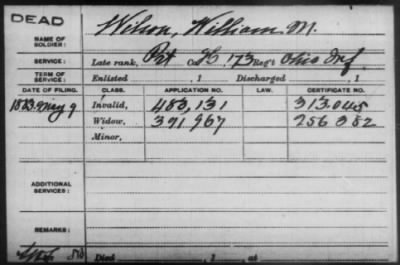 DEAD
NAME OF SOLDIER: Wilson, William M.
SERVICE: Late rank, Pvt Co. K, 173 Reg't Ohio Inf.
TERM OF SERVICE: Enlisted , 1 Discharged , 1
DATE OF FILING. CLASS. APPLICATION NO. LAW. CERTIFICATE NO.
1883 May 9 Invalid, 483,131 313.045
Widow, 391,967 256 382
Minor,
ADDITIONAL SERVICES:
REMARKS:
Died , 1 , at